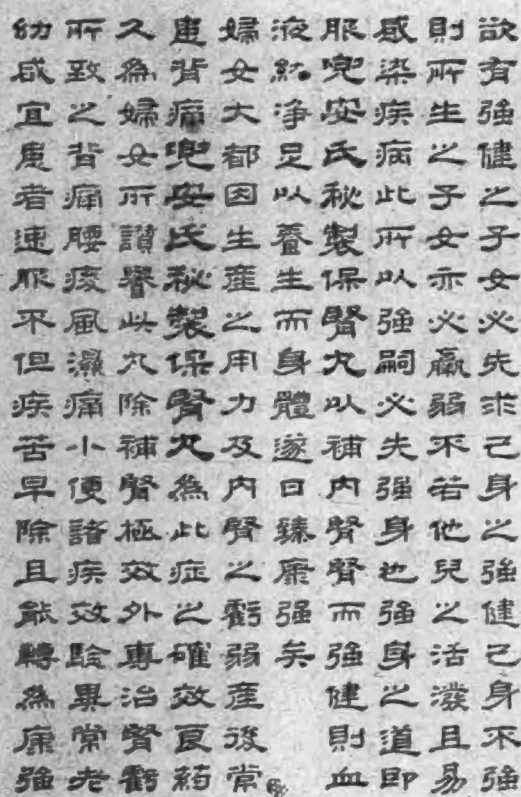 欲有強健之子女必先求己身之強健己身不強
則所生之子女亦必羸弱不若他兒之活潑且易
感染疾病此所以強嗣必先強身也強身之道即
服兜安氏秘製保腎丸以補內腎腎而強健則血
液純淨足以養生而身體遂日臻康强矣
婦女大都因生產之用力及內腎之虧弱產後常
患背痛兜安氏秘製保腎丸為此症之確效良药
久為婦女所讃譽此丸除補腎極效外專治腎虧
所致之背痛腰痠風濕痛小便諸疾效騐異常老
幼咸宜患者速服不但疾苦早除且能轉為康強